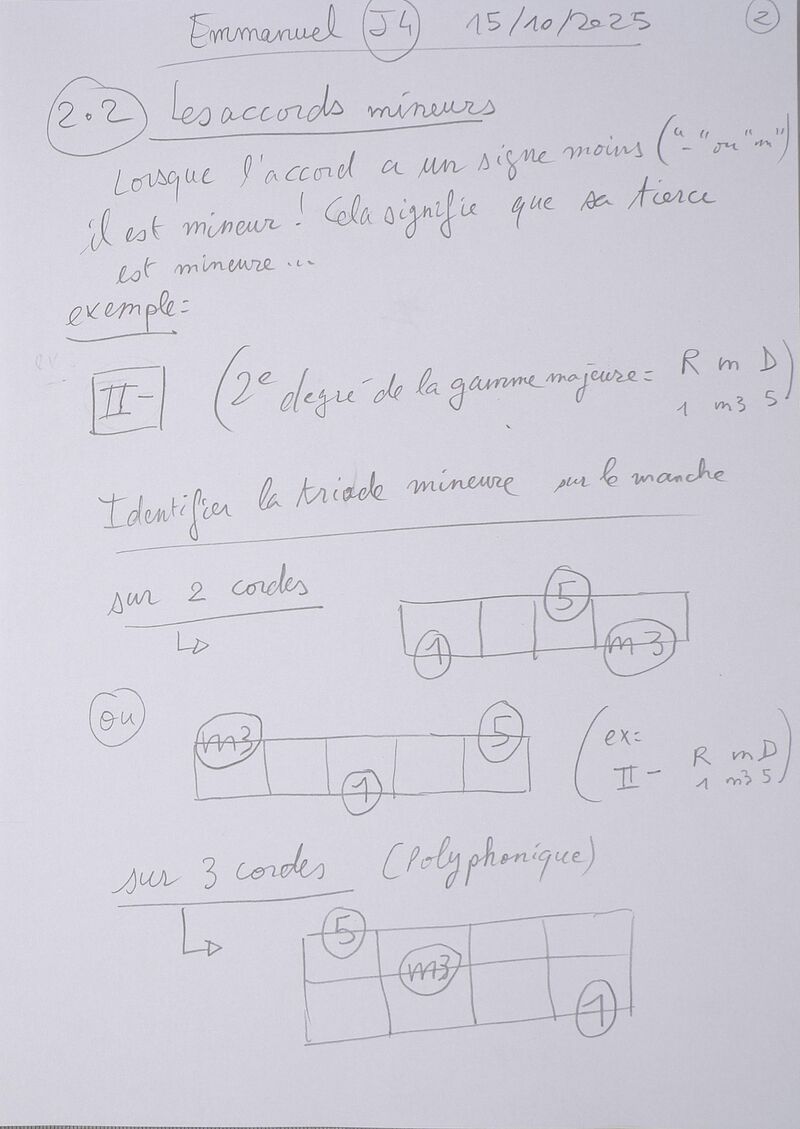 Emmanuel J4 15/10/2025 2
2.2 Les accords mineurs
Lorsque l'accord a un signe moins ("-" ou "m")
il est mineur! Cela signifie que sa tierce
est mineure...
exemple:
II- (2e degré de la gamme majeure = R m D
1 m3 5)
Identifier la triade mineure sur le manche
sur 2 cordes
5
1 m3
ou
m3 5
1
(ex:
II- R m D
1 m3 5)
sur 3 cordes (Polyphonique)
5
m3
1